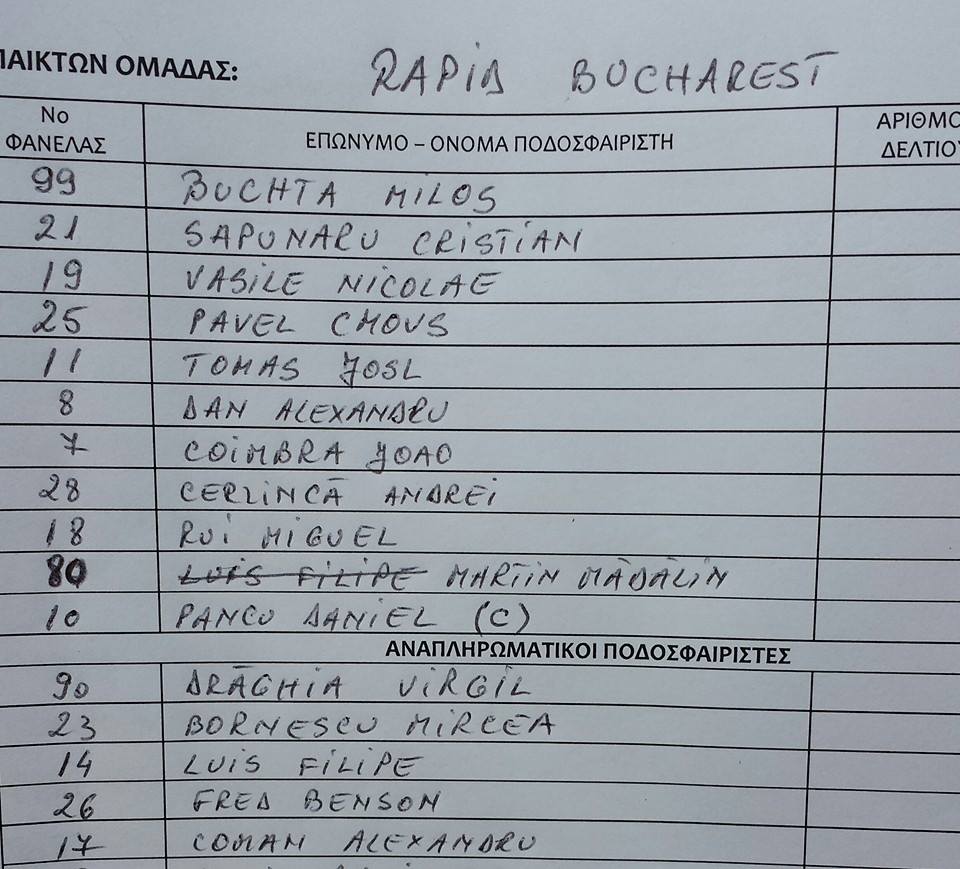 ΠΑΙΚΤΩΝ ΟΜΑΔΑΣ: RAPID BUCHAREST
No ΦΑΝΕΛΑΣ ΕΠΩΝΥΜΟ – ΟΝΟΜΑ ΠΟΔΟΣΦΑΙΡΙΣΤΗ ΑΡΙΘΜΟ ΔΕΛΤΙΟΥ
99 BUCHTA MILOS
21 SAPUNARU CRISTIAN
19 VASILE NICOLAE
25 PAVEL CMOVS
11 TOMAS JOSL
8 DAN ALEXANDRU
7 COIMBRA JOAO
28 CERLINCĂ ANDREI
18 RUI MIGUEL
80 LUIS FILIPE MARTIN MĂDĂLIN
10 PANCU DANIEL (C)
ΑΝΑΠΛΗΡΩΜΑΤΙΚΟΙ ΠΟΔΟΣΦΑΙΡΙΣΤΕΣ
90 DRĂGHIA VIRGIL
23 BORNESCU MIRCEA
14 LUIS FILIPE
26 FRED BENSON
17 COMAN ALEXANDRU